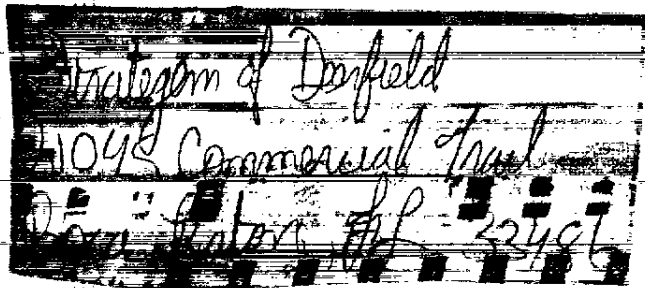 Strategem of Deerfield
21048 Commercial Trail
Boca Raton, FL 33486